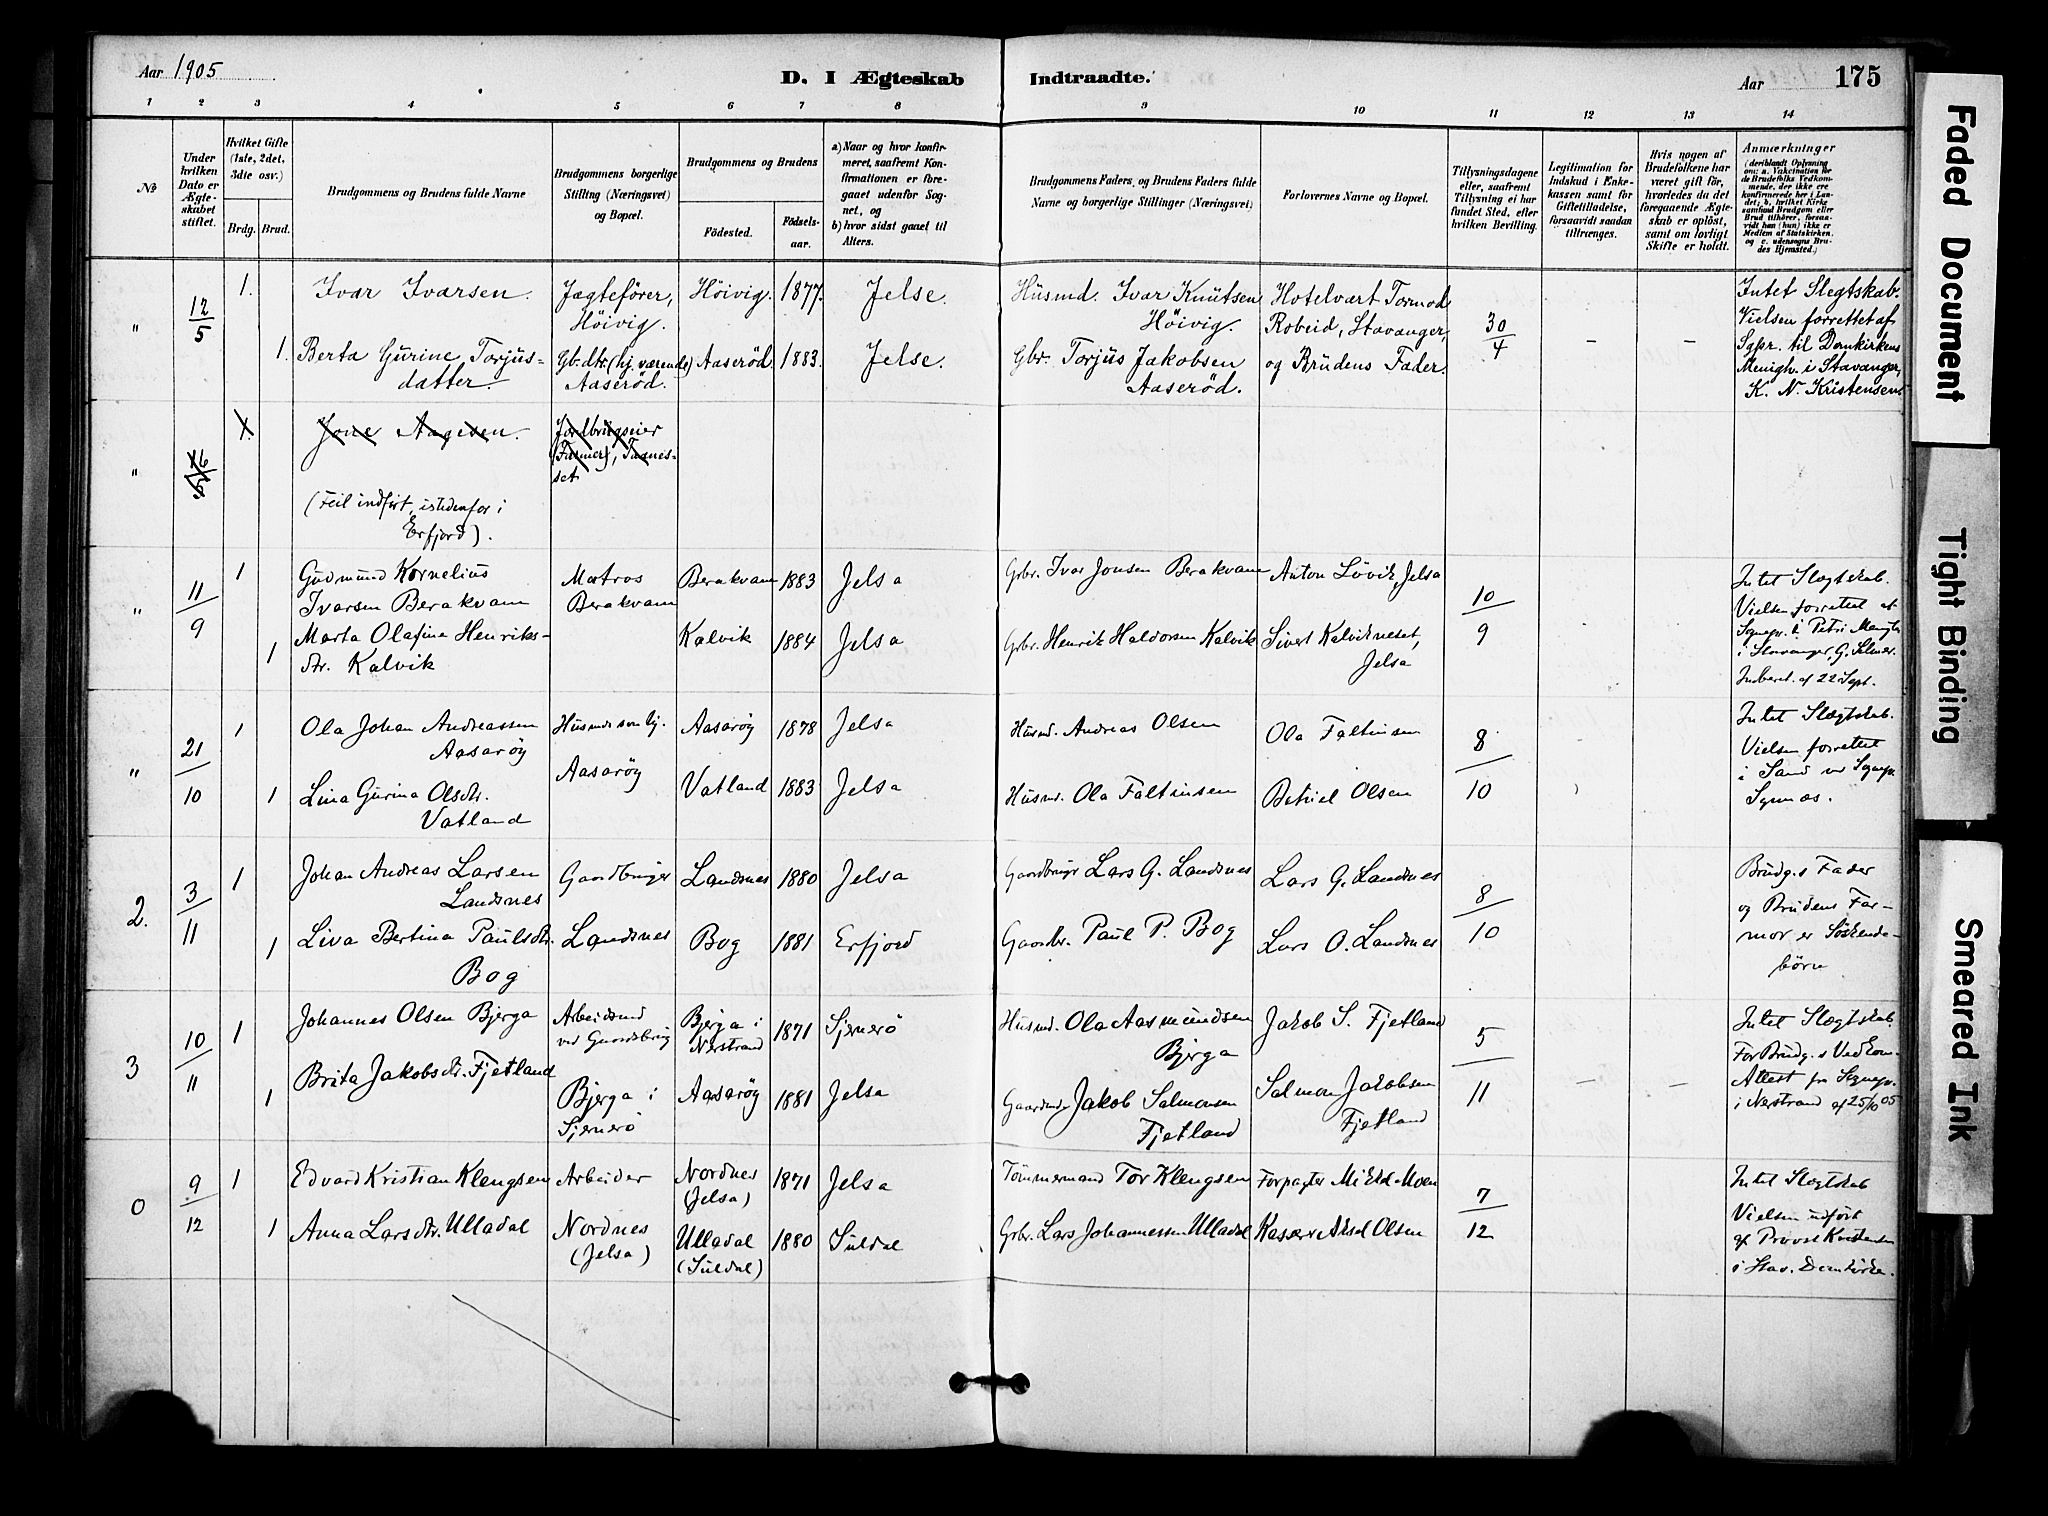 Aar 1905
D. I Ægteskab
Indtraadte.
Aar
175
1 2 3 4 5 6 7 8 9 10 11 12 13 14
No
Under hvilken Dato er Ægteskabet stiftet.
Hvilket Gifte (1ste, 2det, 3die osv.)
Brdg. Brud.
Brudgommens og Brudens fulde Navne
Brudgommens borgerlige Stilling (Næringsvei) og Bopæl.
Brudgommens og Brudens
Födested.
Födselsaar.
a) Naar og hvor konfirmeret, saafremt Konfirmationen er foregaaet udenför Sognet, og
b) hvor sidst gaaet til Alters.
Brudgommens Faders, og Brudens Faders fulde Navne og borgerlige Stillinger (Næringsvei)
Forlovernes Navne og Bopæl.
Tillysningsdagene eller, saafremt Tillysning ei har fundet Sted, efter hvilken Bevilling.
Legitimation for Indskud i Enkekassen samt for Giftetilladelse, forsaavidt saadan tiltrænges.
Hvis nogen af Brudefolkene har været gift för, hvorledes da det foregaaende Ægteskab er oplöst, samt om lovligt Skifte er holdt.
Anmærkninger
(deriblandt Oplysning om: a. Vakcination for de Brudefolks Vedkommende, der ikke ere konfirmerede her i Landet; b. hvilket Kirkesamfund Brudgom eller Brud tilhörer, forsaavidt han (hun) ikke er Medlem af Statskirken, og c. udensogns Brudes Hjemsted.)
" 12/5 1. Ivar Ivarsen. Jægtefører, Höivig. Höivig. 1877. Jelse. Husmd. Ivar Knutsen Höivig. Hotelvært Tormod Robeid, Stavanger, 30/4 – –
1. Berta Gurine Torjusdatter. Gb. dtr. (hj. værende) Aaseröd. Aaseröd. 1883. Jelse. Gbr. Torjus Jakobsen Aaseröd. og Brudens Fader.
Intet Slegtskab.
Vielsen forrettet af
Sgpr. til Domkirkens
Menigh. i Stavanger,
K. N. Kristensen
" 1. Jone Aagesen.
(Farmer),
(Feil indført, istedenfor i
Erfjord).
" 11/9 1 Gudmund Kornelius Ivarsen Berakvam Matros Berakvam Berakvam 1883 Jelsa Grbr. Ivar Jonsen Berakvam Anton Lövik, Jelsa 10/9
1 Marta Olafine Henriksdtr. Kalvik Kalvik 1884 Jelsa Grbr. Henrik Haldorsen Kalvik Sivert Kalvikneset, Jelsa
Intet Slægtskab.
Vielsen forrettet af
Sognepr. t. Petri Mengh.
i Stavanger, G.
Indberet. af 22 Sept.
" 21/10 1 Ola Johan Andreassen Aasarøy Husmandsson hj. Aasarøy Aasarøy 1878 Jelsa Husmd. Andreas Olsen Ola Faltinsen 8/10
1 Lina Gurina Olsdtr. Vatland Vatland 1883 Jelsa Husmd. Ola Faltinsen Betuel Olsen
Intet Slægtskab.
Vielsen forrettet
i Sand ved Sognepr.
2. 3/11 1 Johan Andreas Larsen Landsnes Gaardbruger Landsnes Landsnes 1880 Jelsa Gaardbruger Lars G. Landsnes Lars G. Landsnes 8/10
1 Liva Bertina Paulsdtr. Bog Bog 1881 Erfjord Gaardbr. Paul P. Bog Lars O. Landsnes
Brudg.s Fader
og Brudens Far-
mor er Söskende-
börn
3 10/11 1 Johannes Olsen Bjerga Arbeidsmd ved Gaardsbrug Bjerga i Sjernerö Bjerga i Nerstrand 1871 Sjernerö Husmd. Ola Aasmundsen Bjerga Jakob S. Fjetland 5/11 – –
1 Brita Jakobsdtr. Fjetland Aasarøy 1881 Jelsa Jakob Salmonsen Fjetland Salmon Jakobsen Fjetland
Intet Slægtskab
For Brudg.s Vedkom-
Attest fra Sognepr.
i Nerstrand af 25/10 05
0 9/12 1 Edvard Kristian Klengsen Arbeider Nordnes (Jelsa) Nordnes (Jelsa) 1871 Jelsa Tömmermand Tor Klengsen Forpagter Moen 7/12
1 Anna Larsdtr. Ulladal Ulladal (Suldal) 1880 Suldal Grbr. Lars Johannessen Ulladal Kasserer Olsen
Intet Slægtskab
Vielsen udfört
af Provst Kristensen
i Stav. Domkirke.
Faded Document
Tight Binding
Smeared Ink